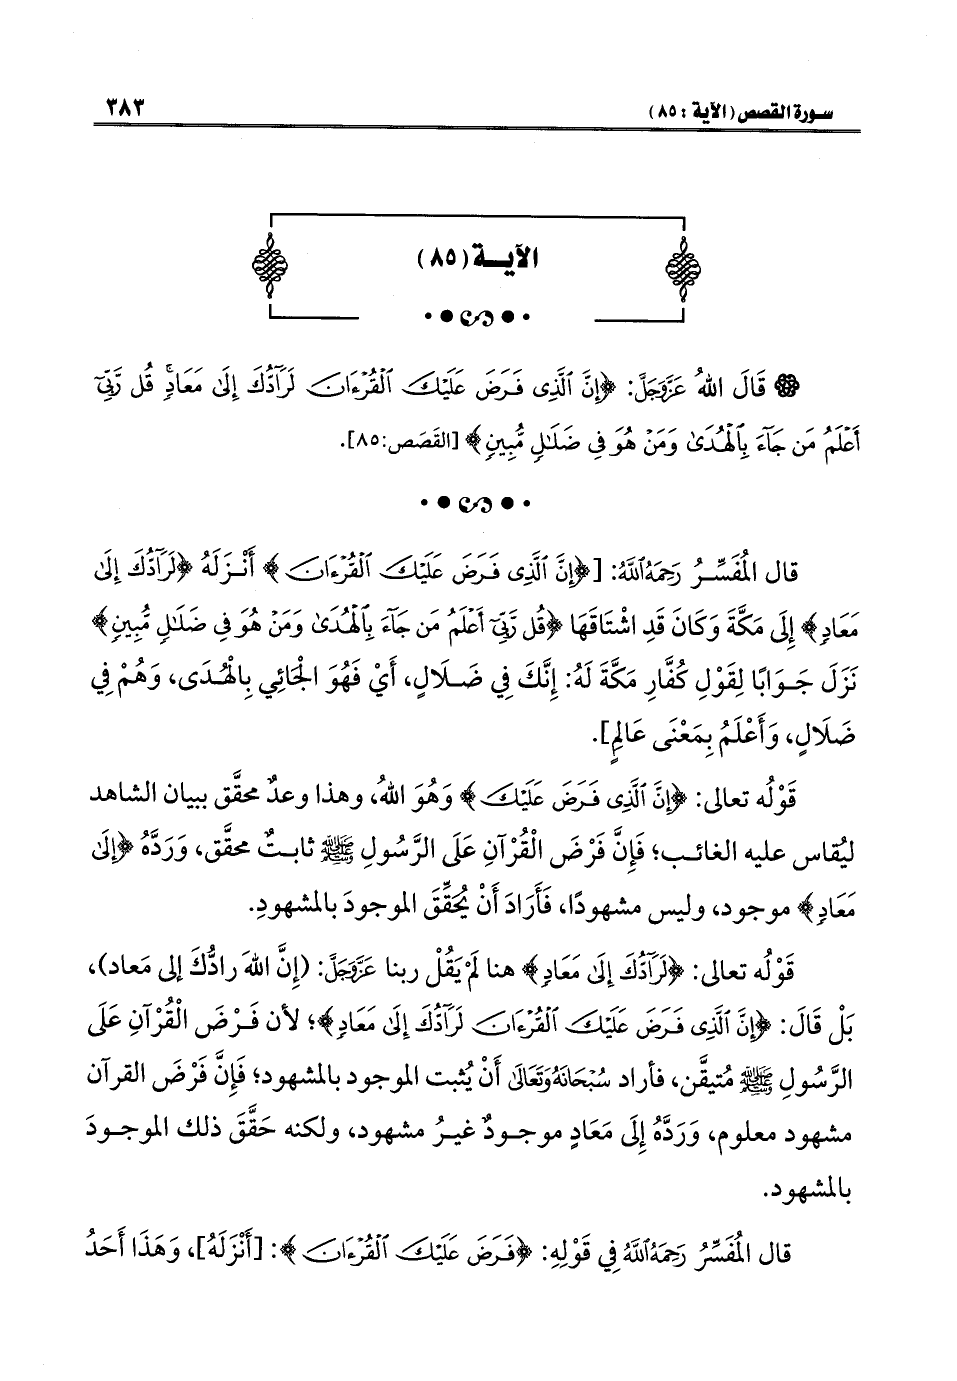 سورة القصص (الآية : ٨٥) ٣٨٣
الآيــة (٨٥)
قَالَ اللهُ عَزَّوَجَلَّ: ﴿إِنَّ ٱلَّذِى فَرَضَ عَلَيْكَ ٱلْقُرْءَانَ لَرَآدُّكَ إِلَىٰ مَعَادٍ ۚ قُل رَّبِّىٓ
أَعْلَمُ مَن جَآءَ بِٱلْهُدَىٰ وَمَنْ هُوَ فِى ضَلَـٰلٍ مُّبِينٍ﴾ [القَصَص:٨٥].
قال الْمُفَسِّـرُ رَحِمَهُ ٱللَّهُ: [﴿إِنَّ ٱلَّذِى فَرَضَ عَلَيْكَ ٱلْقُرْءَانَ﴾ أَنْـزَلَهُ ﴿لَرَآدُّكَ إِلَىٰ
مَعَادٍ﴾ إِلَى مَكَّةَ وَكَانَ قَدِ اشْتَاقَهَا ﴿قُل رَّبِّىٓ أَعْلَمُ مَن جَآءَ بِٱلْهُدَىٰ وَمَنْ هُوَ فِى ضَلَـٰلٍ مُّبِينٍ﴾
نَزَلَ جَـوَابًا لِقَوْلِ كُفَّارِ مَكَّةَ لَهُ: إِنَّكَ فِي ضَـلَالٍ، أَيْ فَهُوَ الْجَائِي بِالْهُدَى، وَهُمْ فِي
ضَلَالٍ، وَأَعْلَمُ بِمَعْنَى عَالِمٍ].
قَوْلُه تعالى: ﴿إِنَّ ٱلَّذِى فَرَضَ عَلَيْكَ﴾ وَهُوَ اللهُ، وهذا وعدٌ محقَّق ببيان الشاهد
ليُقاس عليه الغائـب؛ فَإِنَّ فَرْضَ الْقُرْآنِ عَلَى الرَّسُولِ ﷺ ثابـتٌ محقَّق، وَرَدَّهُ ﴿إِلَىٰ
مَعَادٍ﴾ موجود، وليس مشهودًا، فَأَرَادَ أَنْ يُحَقِّقَ الموجودَ بالمشهودِ.
قَوْلُه تعالى: ﴿لَرَآدُّكَ إِلَىٰ مَعَادٍ﴾ هنا لَمْ يَقُلْ ربنا عَزَّوَجَلَّ: (إِنَّ اللهَ رادُّكَ إلى مَعاد)،
بَلْ قَالَ: ﴿إِنَّ ٱلَّذِى فَرَضَ عَلَيْكَ ٱلْقُرْءَانَ لَرَآدُّكَ إِلَىٰ مَعَادٍ﴾؛ لأن فَـرْضَ الْقُرْآنِ عَلَى
الرَّسُولِ ﷺ مُتيقَّن، فأراد سُبْحَانَهُ وَتَعَالَىٰ أَنْ يُثبت الموجود بالمشهود؛ فَإِنَّ فَرْضَ القرآن
مشهود معلوم، وَرَدَّهُ إِلَى مَعَادٍ موجـودٌ غيـرُ مشهود، ولكنه حَقَّقَ ذلك الموجـودَ
بالمشهود.
قال الْمُفَسِّرُ رَحِمَهُ ٱللَّهُ فِي قَوْلِهِ: ﴿فَرَضَ عَلَيْكَ ٱلْقُرْءَانَ﴾: [أَنْزَلَهُ]، وَهَذَا أَحَدُ